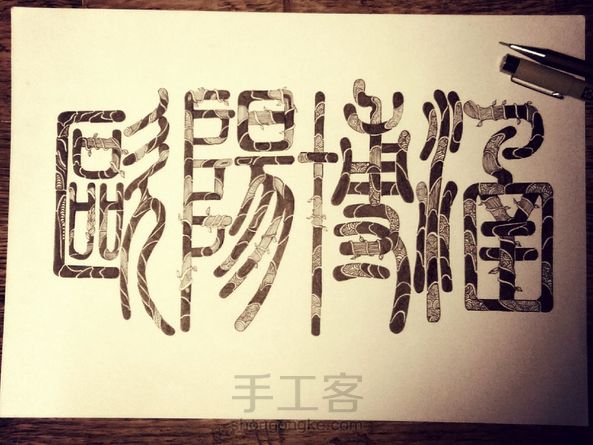 歐陽博
手工客
shougongke.com